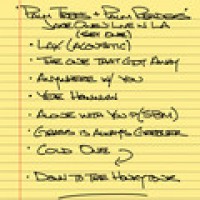 "Palm Trees + Palm Readers"
Jake Owen Live in LA
(Set One)
• LAX (Acoustic)
• The One That Got Away
• Anywhere w/ You
• Yee Hawwww
• Alone with You
• Grass is Always Greener
• Cold One
• Down to the Honeytonk